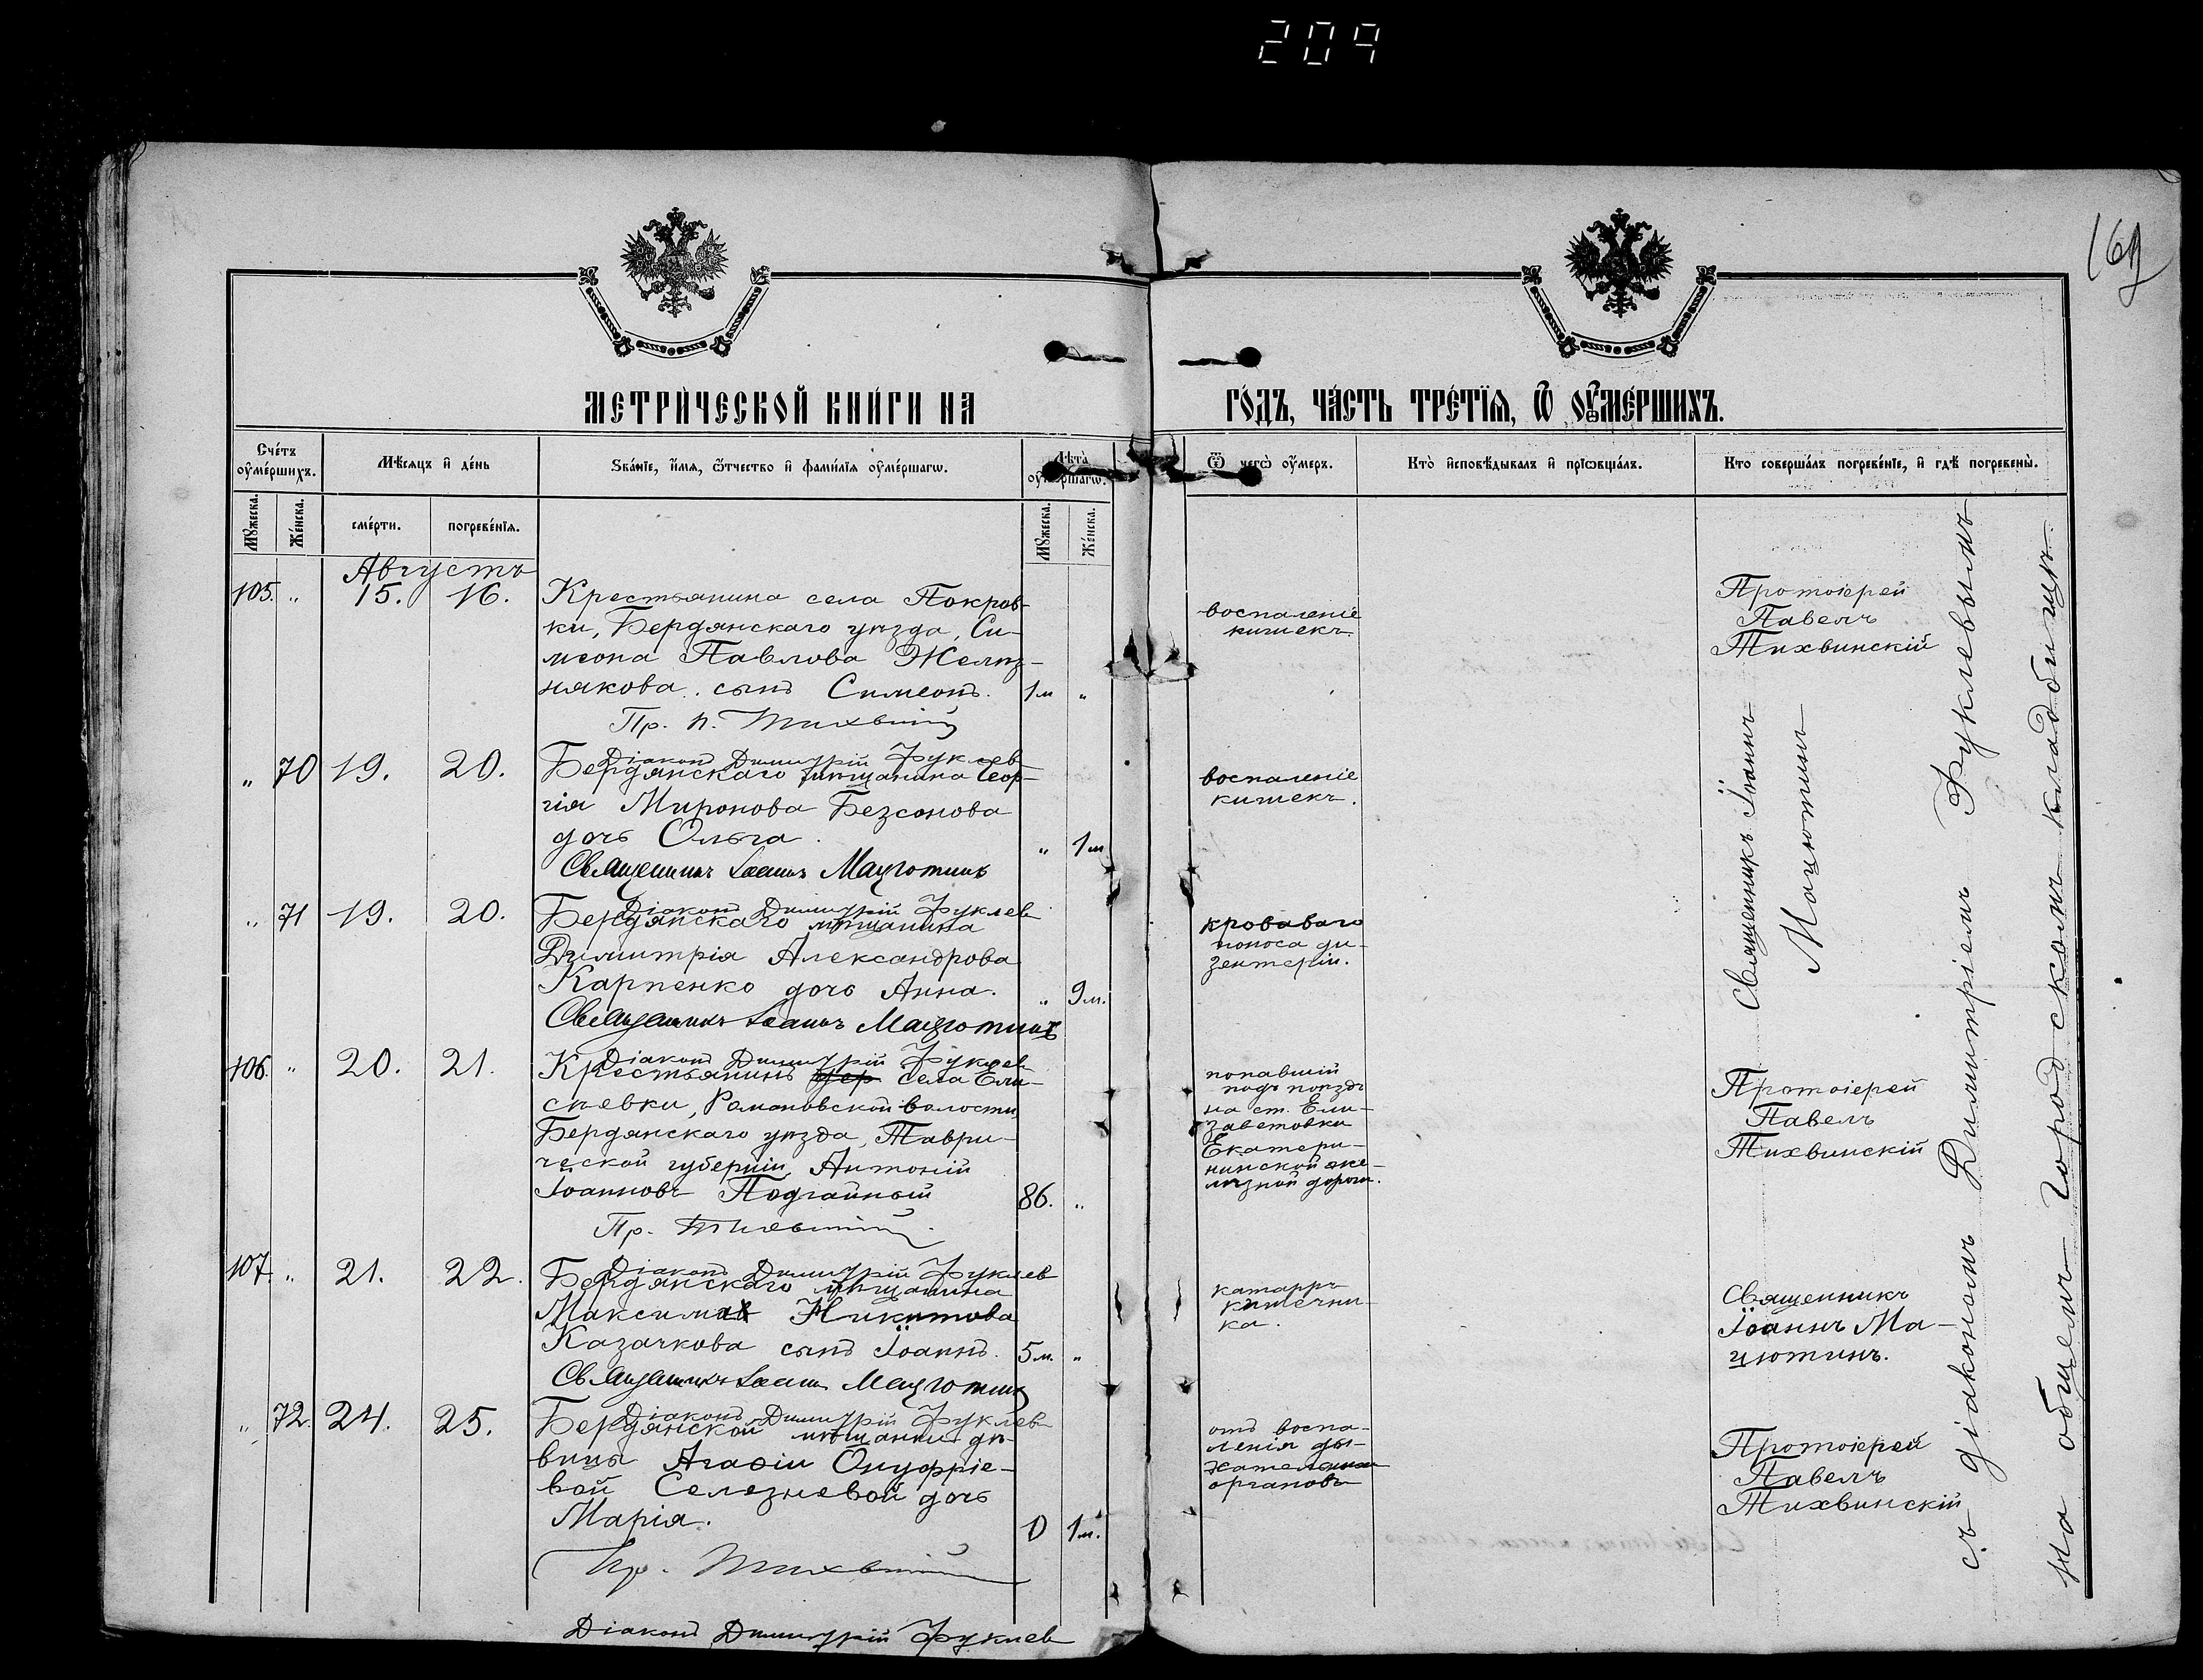 209
169
МЕТРИ́ЧЕСКОЙ КНИ́ГИ НА
ГО́ДЪ, ЧА́СТЬ ТРЕ́ТЇѦ, Ѿ ОУ҆МЕ́РШИХЪ.
Сче́тъ оу҆ме́ршихъ.
Мѣ́сѧцъ и҆ де́нь
Ѕва́нїе, и҆́мѧ, ѻ҆́тчество и҆ фами́лїѧ оу҆ме́ршагѡ.
Лѣ́та оу҆ме́ршагѡ.
Ѿ чегѡ̀ оу҆́меръ.
Кто̀ и҆сповѣ́дывалъ и҆ прїѡбща́лъ.
Кто соверша́лъ погребе́нїе, и҆ гдѣ̀ погребены̀.
Мꙋ́жеска.
Же́нска.
сме́рти.
погребе́нїѧ.
Мꙋ́жеска.
Же́нска.
Августъ
105. „ 15. 16.
Крестьянина села Покров-
ки, Бердянскаго уѣзда, Си-
меона Павлова Желѣз-
някова сынъ Симеонъ. 1м „
Пр. П. Тихвинскій
Діаконъ Димитрій Фуклев
воспаленіе
кишекъ.
Протоіерей
Павелъ
Тихвинскій
„ 70 19. 20.
Бердянскаго мѣщанина Геор-
гія Миронова Безсонова
дочь Ольга. „ 1м
Священникъ Іоаннъ Мацютинъ
Діаконъ Димитрій Фуклев
воспаленіе
кишекъ.
„ 71 19. 20.
Бердянскаго мѣщанина
Димитрія Александрова
Карпенко дочь Анна. „ 9м.
Священникъ Іоаннъ Мацютинъ
Діаконъ Димитрій Фуклев
кроваваго
поноса ди-
зентеріи.
Священникъ Іоаннъ
Мацютинъ
106. „ 20. 21.
Крестьянинъ дер села Ели-
сѣевки, Романовской волости,
Бердянскаго уѣзда, Таври-
ческой губерніи, Антоній
Іоанновъ Подгайный 86. „
Пр. Тихвинскій
Діаконъ Димитрій Фуклев
попавшій
подъ поѣздъ
на ст. Ели-
заветовки
Екатери-
нинской же-
лѣзной дороги.
Протоіерей
Павелъ
Тихвинскій
107. „ 21. 22.
Бердянскаго мѣщанина
Максима Никитова
Казачкова сынъ Іоаннъ. 5м. „
Священникъ Іоаннъ Мацютинъ
Діаконъ Димитрій Фуклев
катарръ
кишечни-
ка.
Священникъ
Іоаннъ Ма-
цютинъ.
„ 72. 24. 25.
Бердянской мѣщанки дѣ-
вицы Агаѳіи Онуфріе-
вой Селезневой дочь
Марія. 0 1м.
Пр. Тихвинскій
Діаконъ Димитрій Фуклев
отъ воспа-
ленія ды-
хательныхъ
органовъ
Протоіерей
Павелъ
Тихвинскій
съ діакономъ Димитріемъ Фуклевымъ
на общемъ городскомъ кладбищѣ